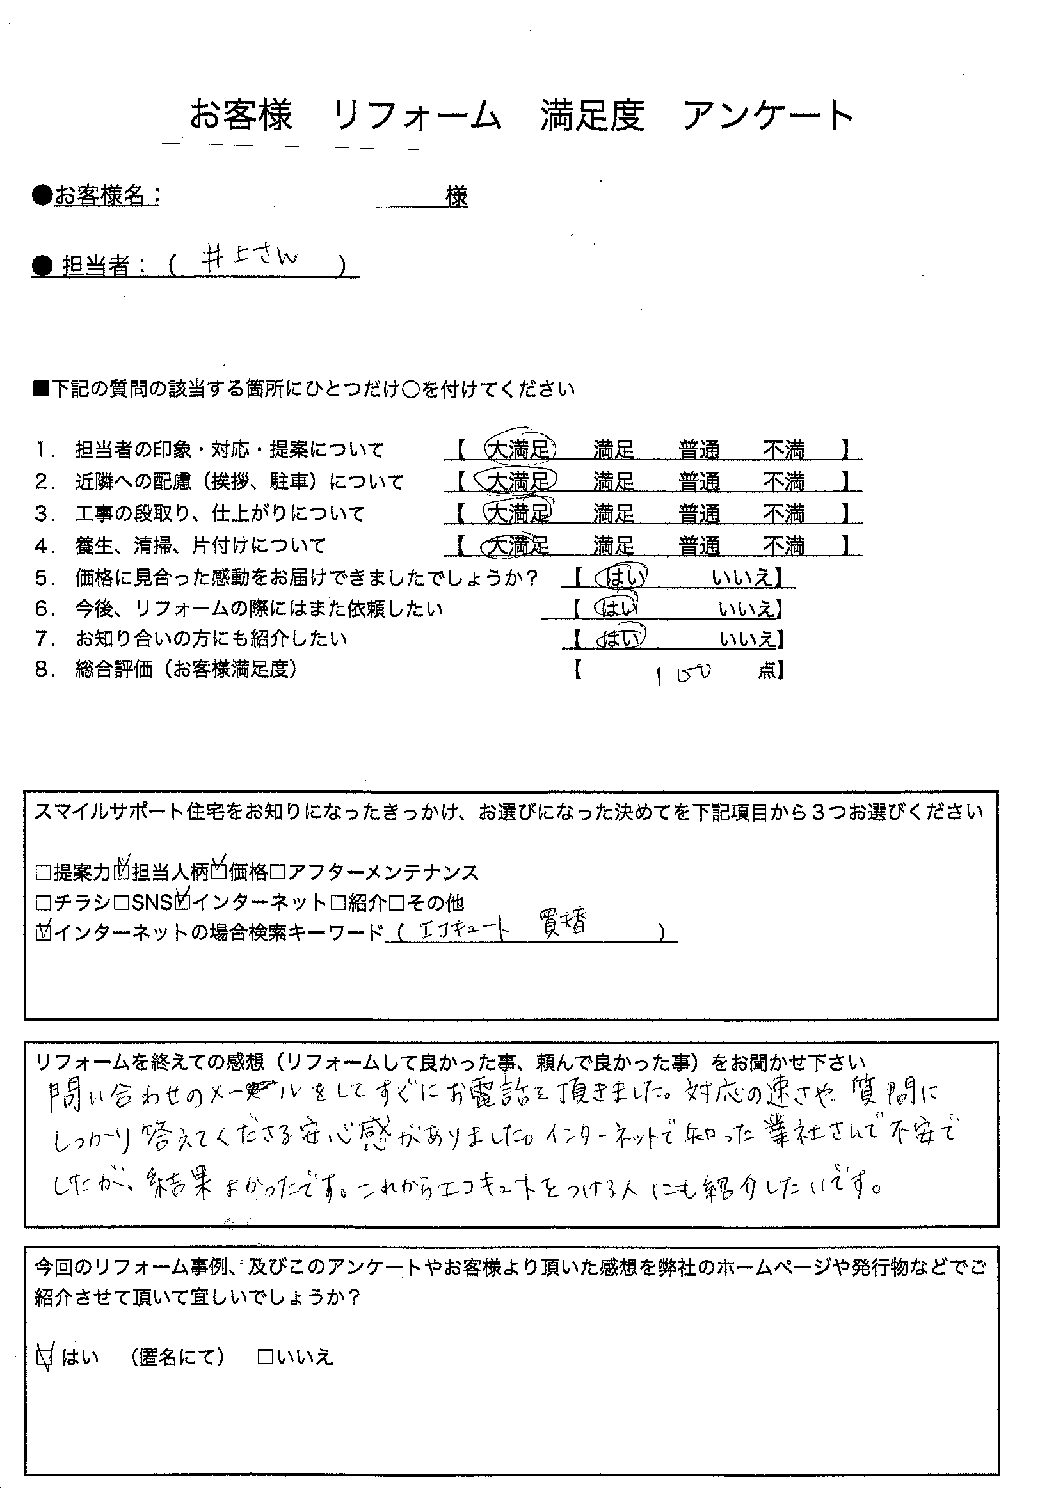 お客様　リフォーム　満足度　アンケート
●お客様名：　　　　　　様
●担当者：（ 井上さん ）
■下記の質問の該当する箇所にひとつだけ〇を付けてください
1． 担当者の印象・対応・提案について 【 大満足 満足 普通 不満 】
2． 近隣への配慮（挨拶、駐車）について 【 大満足 満足 普通 不満 】
3． 工事の段取り、仕上がりについて 【 大満足 満足 普通 不満 】
4． 養生、清掃、片付けについて 【 大満足 満足 普通 不満 】
5． 価格に見合った感動をお届けできましたでしょうか？ 【 はい いいえ】
6． 今後、リフォームの際にはまた依頼したい 【 はい いいえ】
7． お知り合いの方にも紹介したい 【 はい いいえ】
8． 総合評価（お客様満足度） 【 100 点】
スマイルサポート住宅をお知りになったきっかけ、お選びになった決めてを下記項目から３つお選びください
□提案力☑担当人柄☑価格□アフターメンテナンス
□チラシ□SNS☑インターネット□紹介□その他
☑インターネットの場合検索キーワード（ エコキュート 買替 ）
リフォームを終えての感想（リフォームして良かった事、頼んで良かった事）をお聞かせ下さい
問い合わせのメールをしてすぐにお電話を頂きました。対応の速さや質問に
しっかり答えてくださる安心感がありました。インターネットで知った業社さんで不安で
したが、結果よかったです。これからエコキュートをつける人にも紹介したいです。
今回のリフォーム事例、及びこのアンケートやお客様より頂いた感想を弊社のホームページや発行物などでご
紹介させて頂いて宜しいでしょうか？
☑はい　（匿名にて）　□いいえ